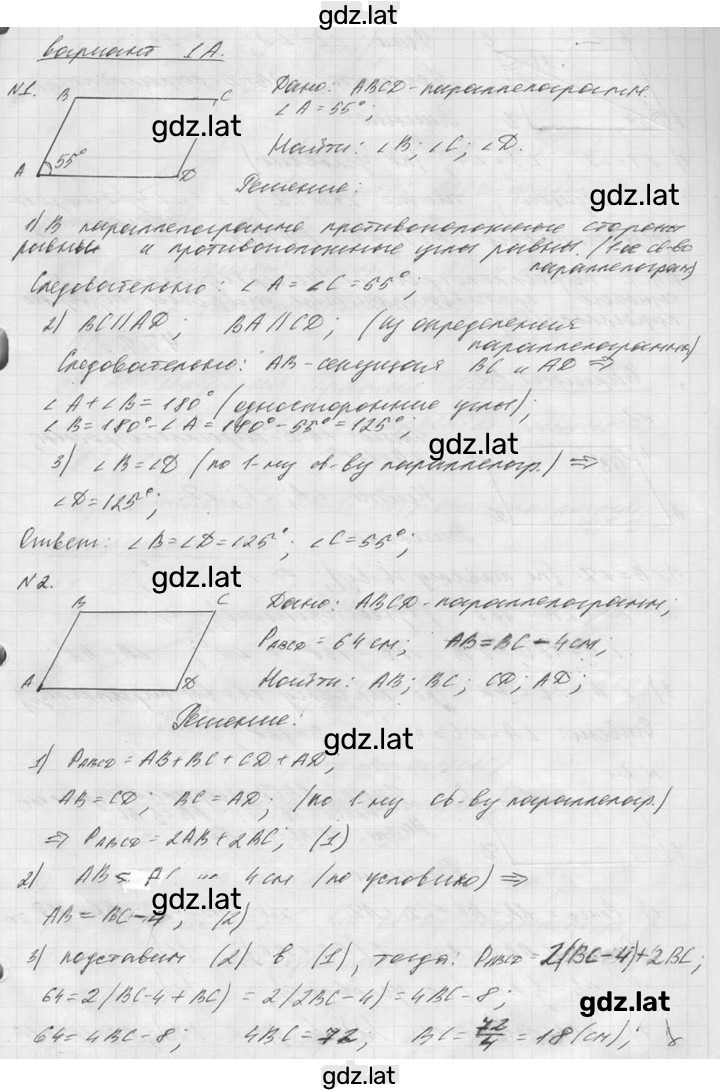 gdz.lat
вариант 1А.
№1.
B C
A 55° D
gdz.lat
Дано: ABCD - параллелограмм.
∠A = 55°;
Найти: ∠B; ∠C; ∠D.
Решение:
gdz.lat
1) В параллелограмме противоположные стороны
равны и противоположные углы равны. (1ое св-во
параллелограм)
Следовательно: ∠A = ∠C = 55°;
2) BC || AD; BA || CD; (из определения
параллелограмма)
Следовательно: AB - секущая BC и AD ⇒
∠A + ∠B = 180° (односторонние углы);
∠B = 180° - ∠A = 180° - 55° = 125°;
gdz.lat
3) ∠B = ∠D (по 1-му св-ву параллелогр.) ⇒
∠D = 125°;
Ответ: ∠B = ∠D = 125°; ∠C = 55°;
gdz.lat
№2.
B C
A D
Дано: ABCD - параллелограмм;
P ABCD = 64 см; AB = BC - 4 см;
Найти: AB; BC; CD; AD;
Решение:
gdz.lat
1) P ABCD = AB + BC + CD + AD,
AB = CD; BC = AD; (по 1-му св-ву параллелогр.)
⇒ P ABCD = 2AB + 2BC; (1)
2) AB 4 см (по условию) ⇒
gdz.lat
AB = BC - 4; (2)
3) подставим (2) в (1), тогда: P ABCD = 2(BC - 4) + 2BC;
64 = 2(BC - 4 + BC) = 2(2BC - 4) = 4BC - 8;
gdz.lat
64 = 4BC - 8; 4BC = 72; BC = 72/4 = 18 (см);
gdz.lat